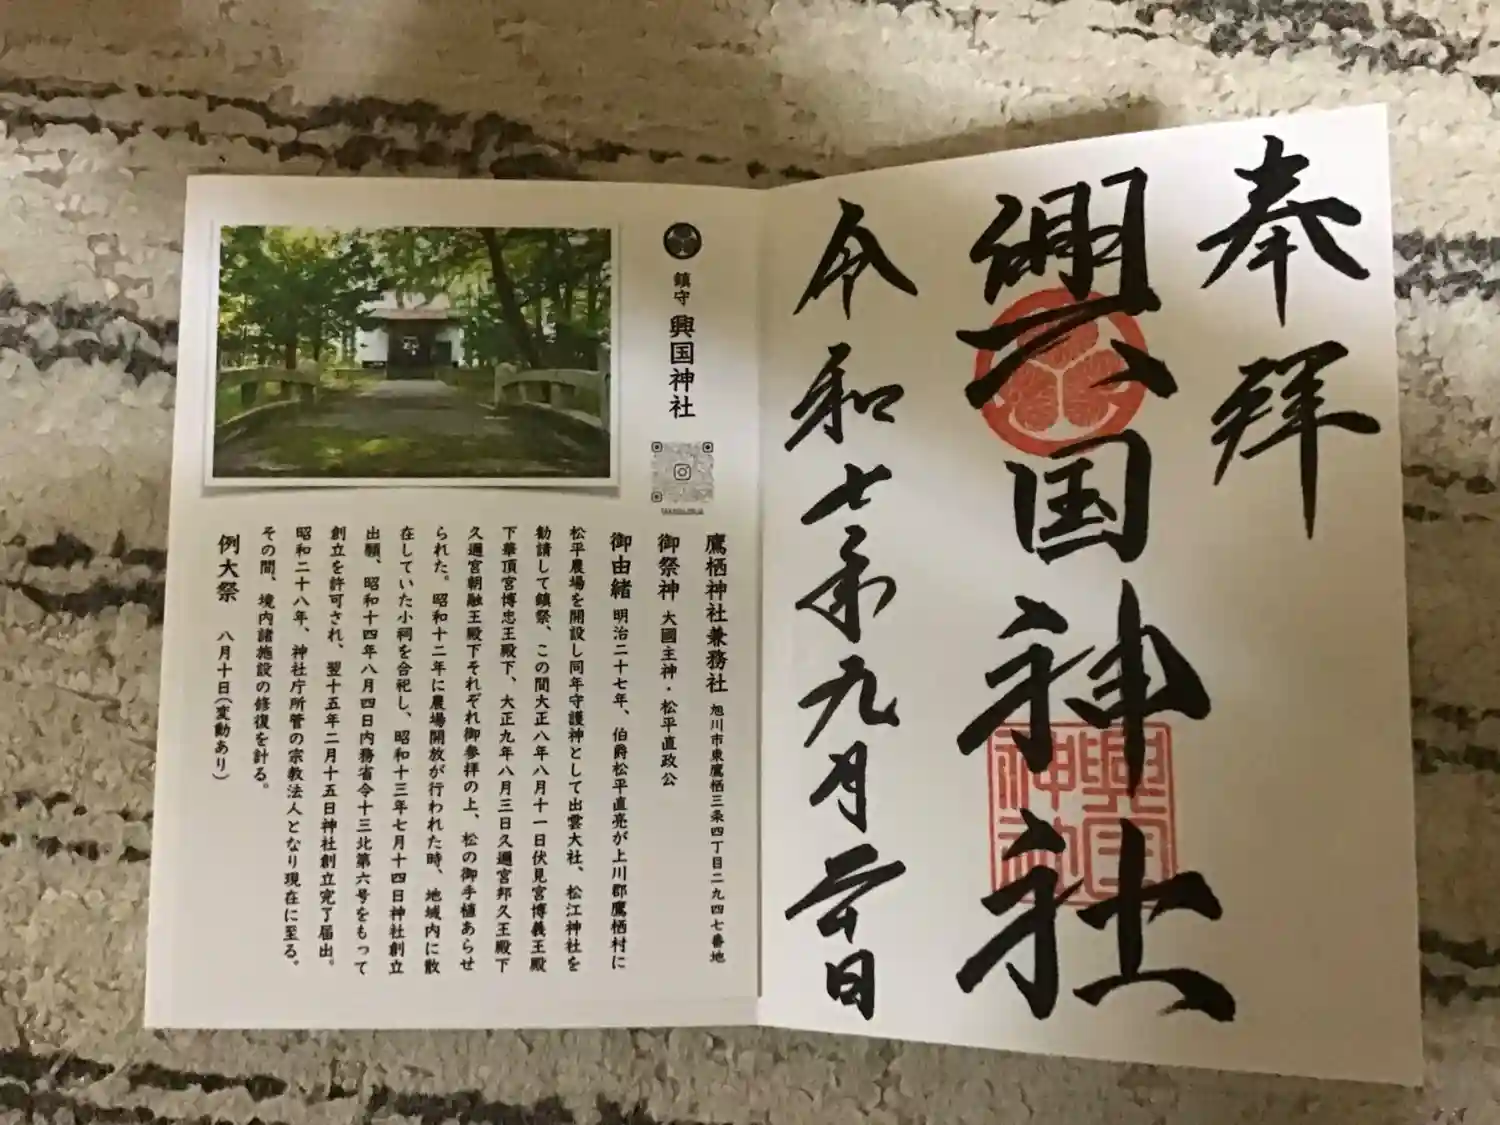 奉拝
興国神社
興国神社
令和七年九月廿日
鎮守 興国神社
鷹栖神社兼務社 旭川市東鷹栖三条四丁目二九四七番地
御祭神 大國主神・松平直政公
御由緒 明治二十七年、伯爵松平直亮が上川郡鷹栖村に
松平農場を開設し同年守護神として出雲大社、松江神社を
勧請して鎮祭、この間大正八年八月十一日伏見宮博義王殿
下華頂宮博忠王殿下、大正九年八月三日久邇宮邦久王殿下
久邇宮朝融王殿下それぞれ御参拝の上、松の御手植あらせ
られた。昭和十二年に農場開放が行われた時、地域内に散
在していた小祠を合祀し、昭和十三年七月十四日神社創立
出願、昭和十四年八月四日内務省令十三北第六号をもって
創立を許可され、翌十五年二月十五日神社創立完了届出。
昭和二十八年、神社庁所管の宗教法人となり現在に至る。
その間、境内諸施設の修復を計る。
例大祭 八月十日(変動あり)